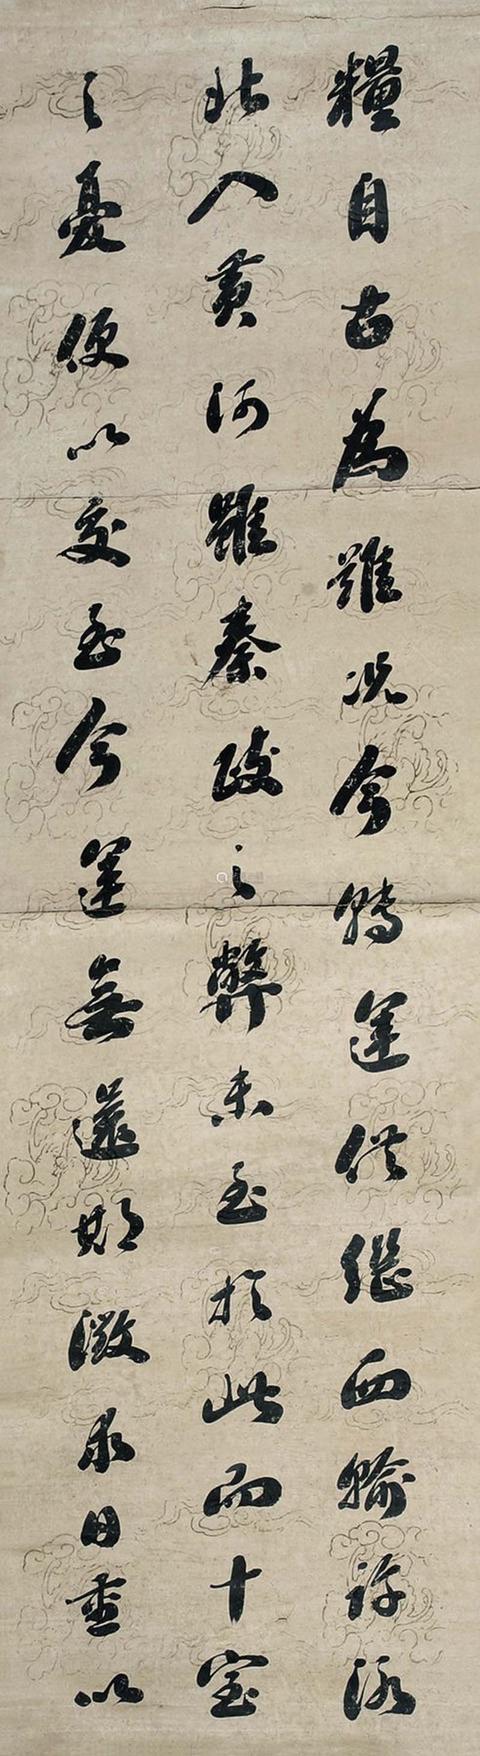 糧自古為難況今轉運供繼西輸許洛
北入黃河雖秦政之弊未至於此而十室
之憂便以交至今運無還期徵求日重以